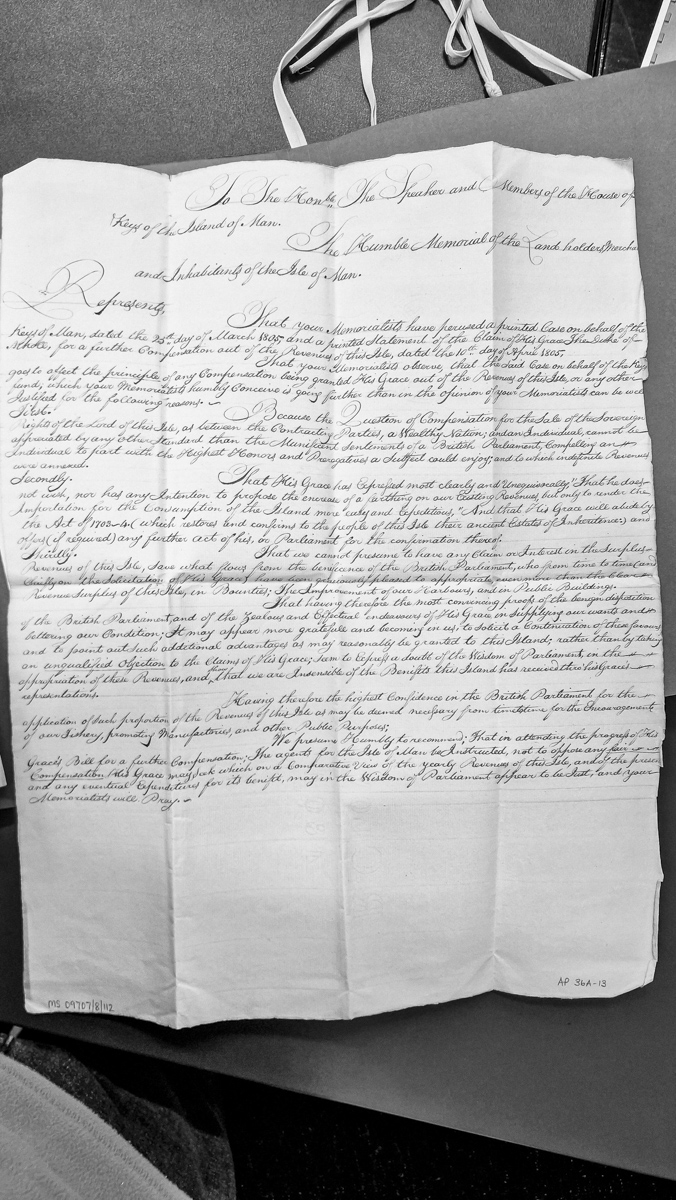 To The Honble. The Speaker and Members of the House of
Keys of the Island of Man.
The Humble Memorial of the Land holders, Mercha
and Inhabitants of the Isle of Man.
Represents,
That your Memorialists have perused a printed Case on behalf of the
Keys of Man, dated the 25th day of March 1805, and a printed Statement of the Claim of His Grace The Duke of
Atholl, for a further Compensation out of the Revenues of this Isle, dated the 10th day of April 1805.
That your Memorialists observe, that the said Case on behalf of the Keys
goes to affect the principle of any Compensation being granted His Grace out of the Revenues of this Isle, or any other
fund, which your Memorialists humbly Conceive is going further than in the opinion of your Memorialists can be well
Justified for the following reasons.
First.
Because the Question of Compensation for the Sale of the Sovereign
Rights of the Lord of this Isle, as between the Contracting Parties, a Wealthy Nation; and an Individual, cannot be
appreciated by any other Standard than the Munificent Sentiments of a British Parliament, Compelling an
Individual to part with the Highest Honors and Prerogatives a Subject could enjoy; and to which indefinite Revenues
were annexed.
Secondly.
That His Grace has Expressed most clearly and Unequivocally, "That he does
not wish, nor has any Intention to propose the encrease of a farthing on our Existing Revenues, but only to render the
Importation for the Consumption of the Island more easy and Expeditious," And that His Grace will abide by
the Act of 1703-4 (which restores and confirms to the people of this Isle their ancient Estates of Inheritance) and
offers (if required) any further act of his, or Parliament for the confirmation thereof.
Thirdly.
That we cannot presume to have any Claim or Interest in the Surplus
Revenues of this Isle, Save what flows from the beneficence of the British Parliament, who from time to time (and
Chiefly on the Solicitation of His Grace) have been graciously pleased to appropriate even more than the Clear
Revenue Surplus of this Isle, in Bounties; The Improvement of our Harbours, and in Public Buildings.
That having therefore the most convincing proofs of the benign disposition
of the British Parliament, and of the Zealous and Effectual endeavours of His Grace in Supplying our wants and
bettering our Condition; It may appear more grateful and becoming in us, to solicit a Continuation of these favours
and to point out such additional advantages as may reasonably be granted to this Island; rather than by taking
an unqualified Objection to the Claims of His Grace; seem to Express a doubt of the Wisdom of Parliament, in the
appropriation of these Revenues, and that we are Insensible of the Benefits this Island has received thro' his Grace's
representations.
Having therefore the highest Confidence in the British Parliament for the
application of such proportion of the Revenues of this Isle as may be deemed necessary from time to time for the Encouragement
of our Fishery, promoting Manufactories, and other Public Purposes;
We presume Humbly to recommend; That in attending the progress of His
Grace's Bill for a further Compensation; The agents for the Isle of Man be Instructed, not to oppose any fair
Compensation, His Grace may seek which on a Comparative View of the yearly Revenues of this Isle, and of the present
and any eventual Expenditures for its benefit, may in the Wisdom of Parliament appear to be Just, and your
Memorialists will Pray.
MS 09707/8/112
AP 36A-13